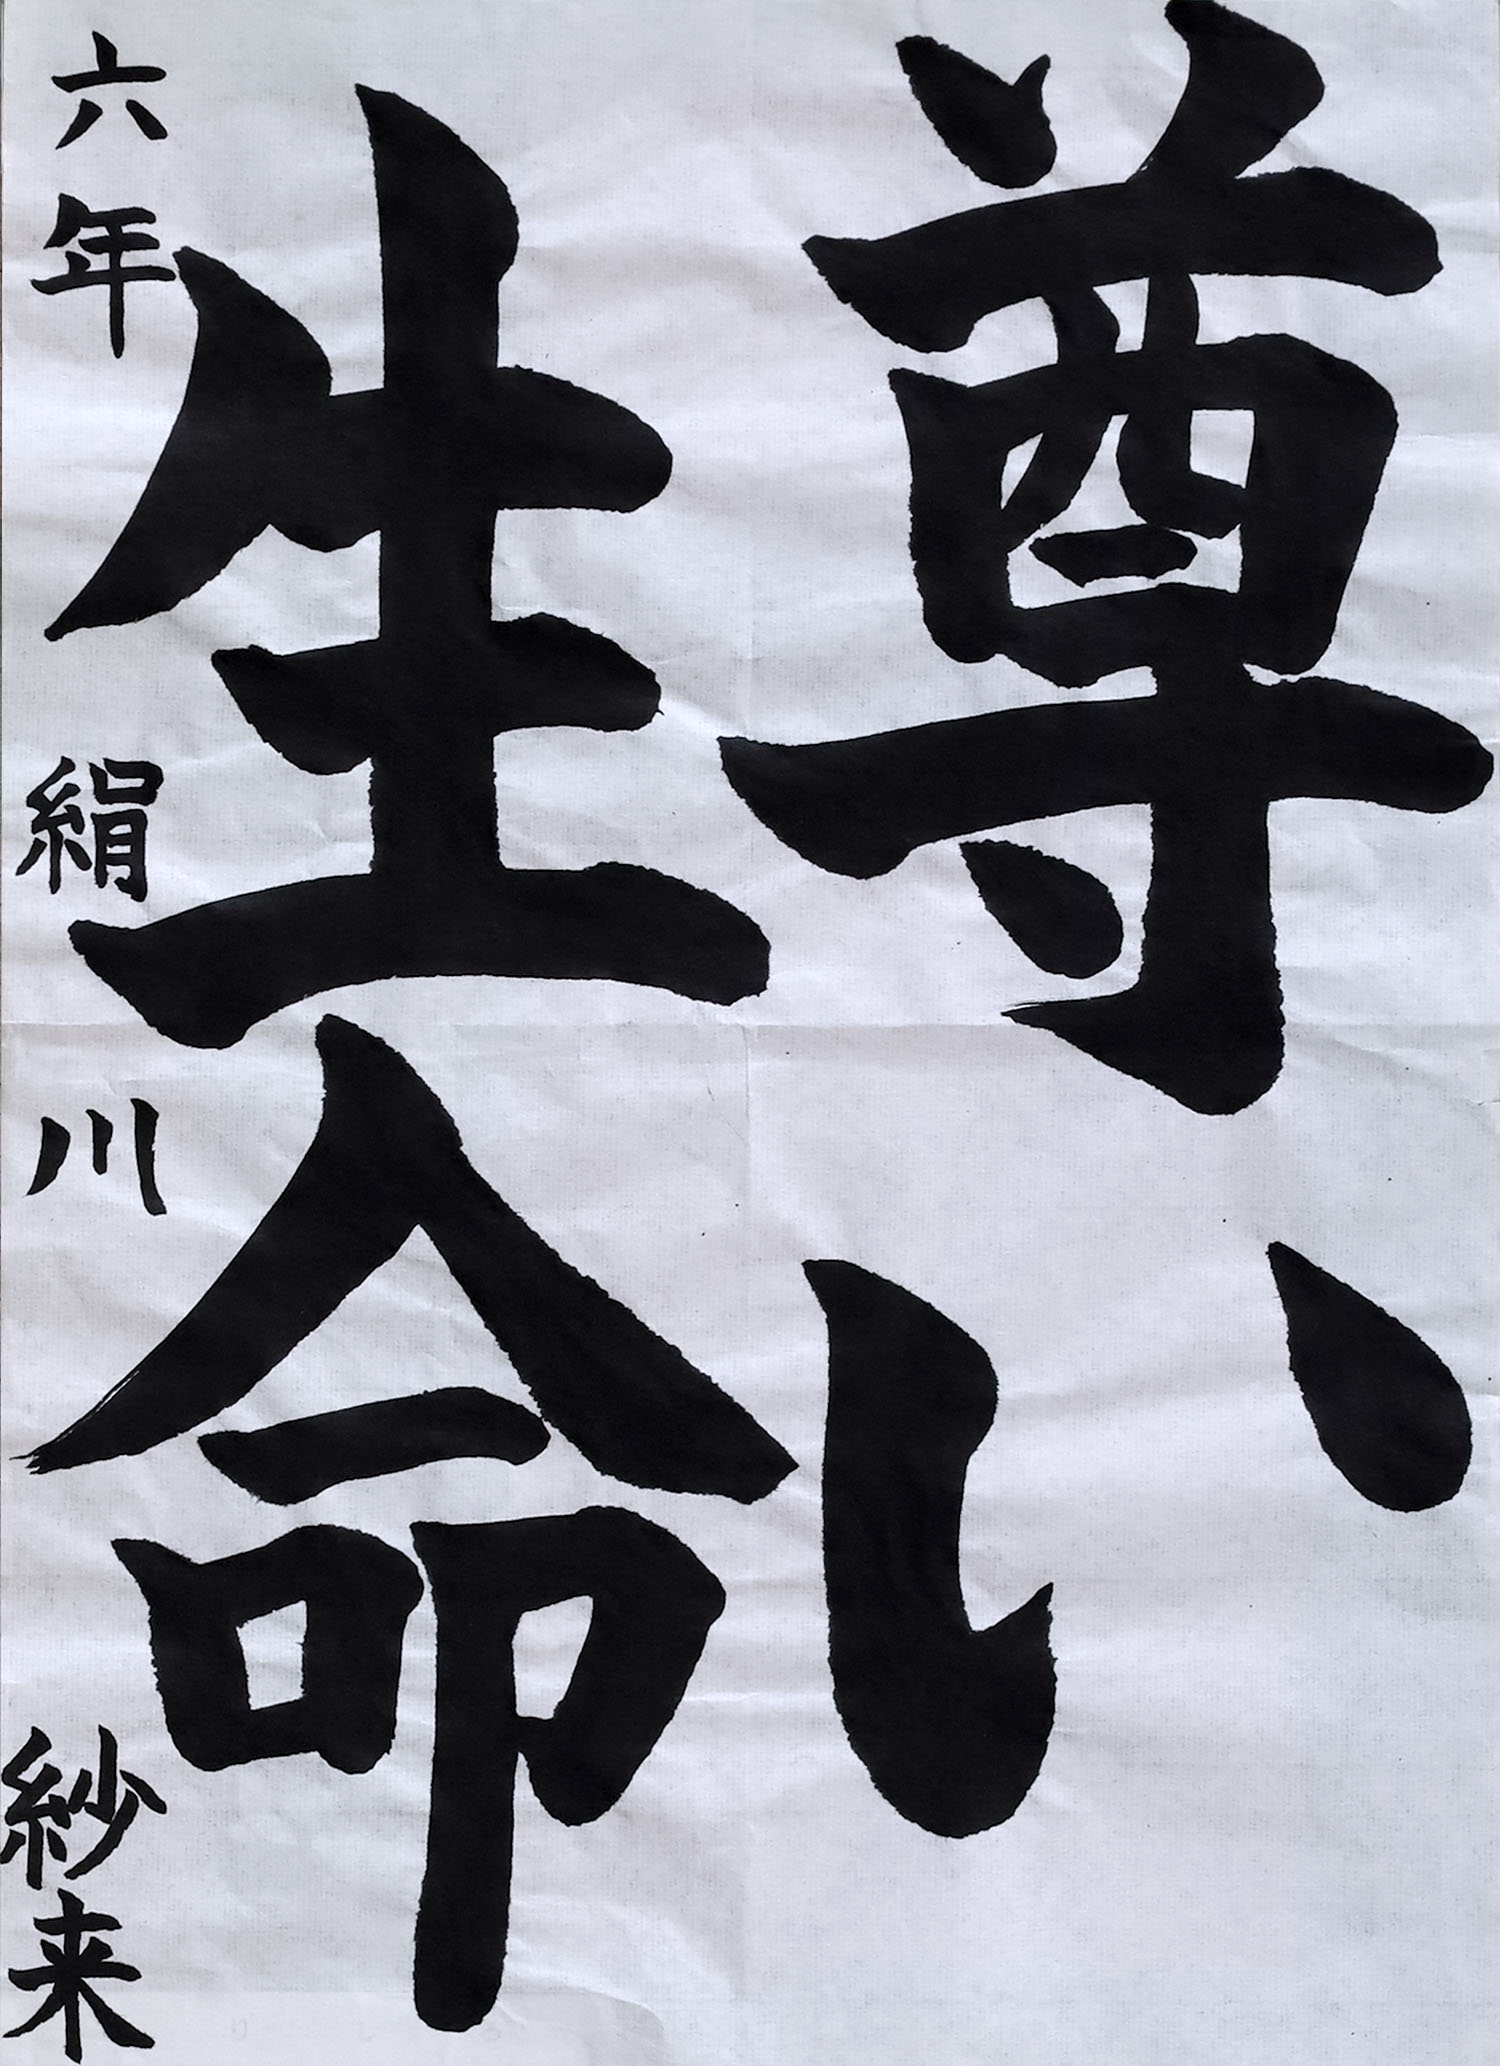 尊い
生命
六年 絹川 紗来